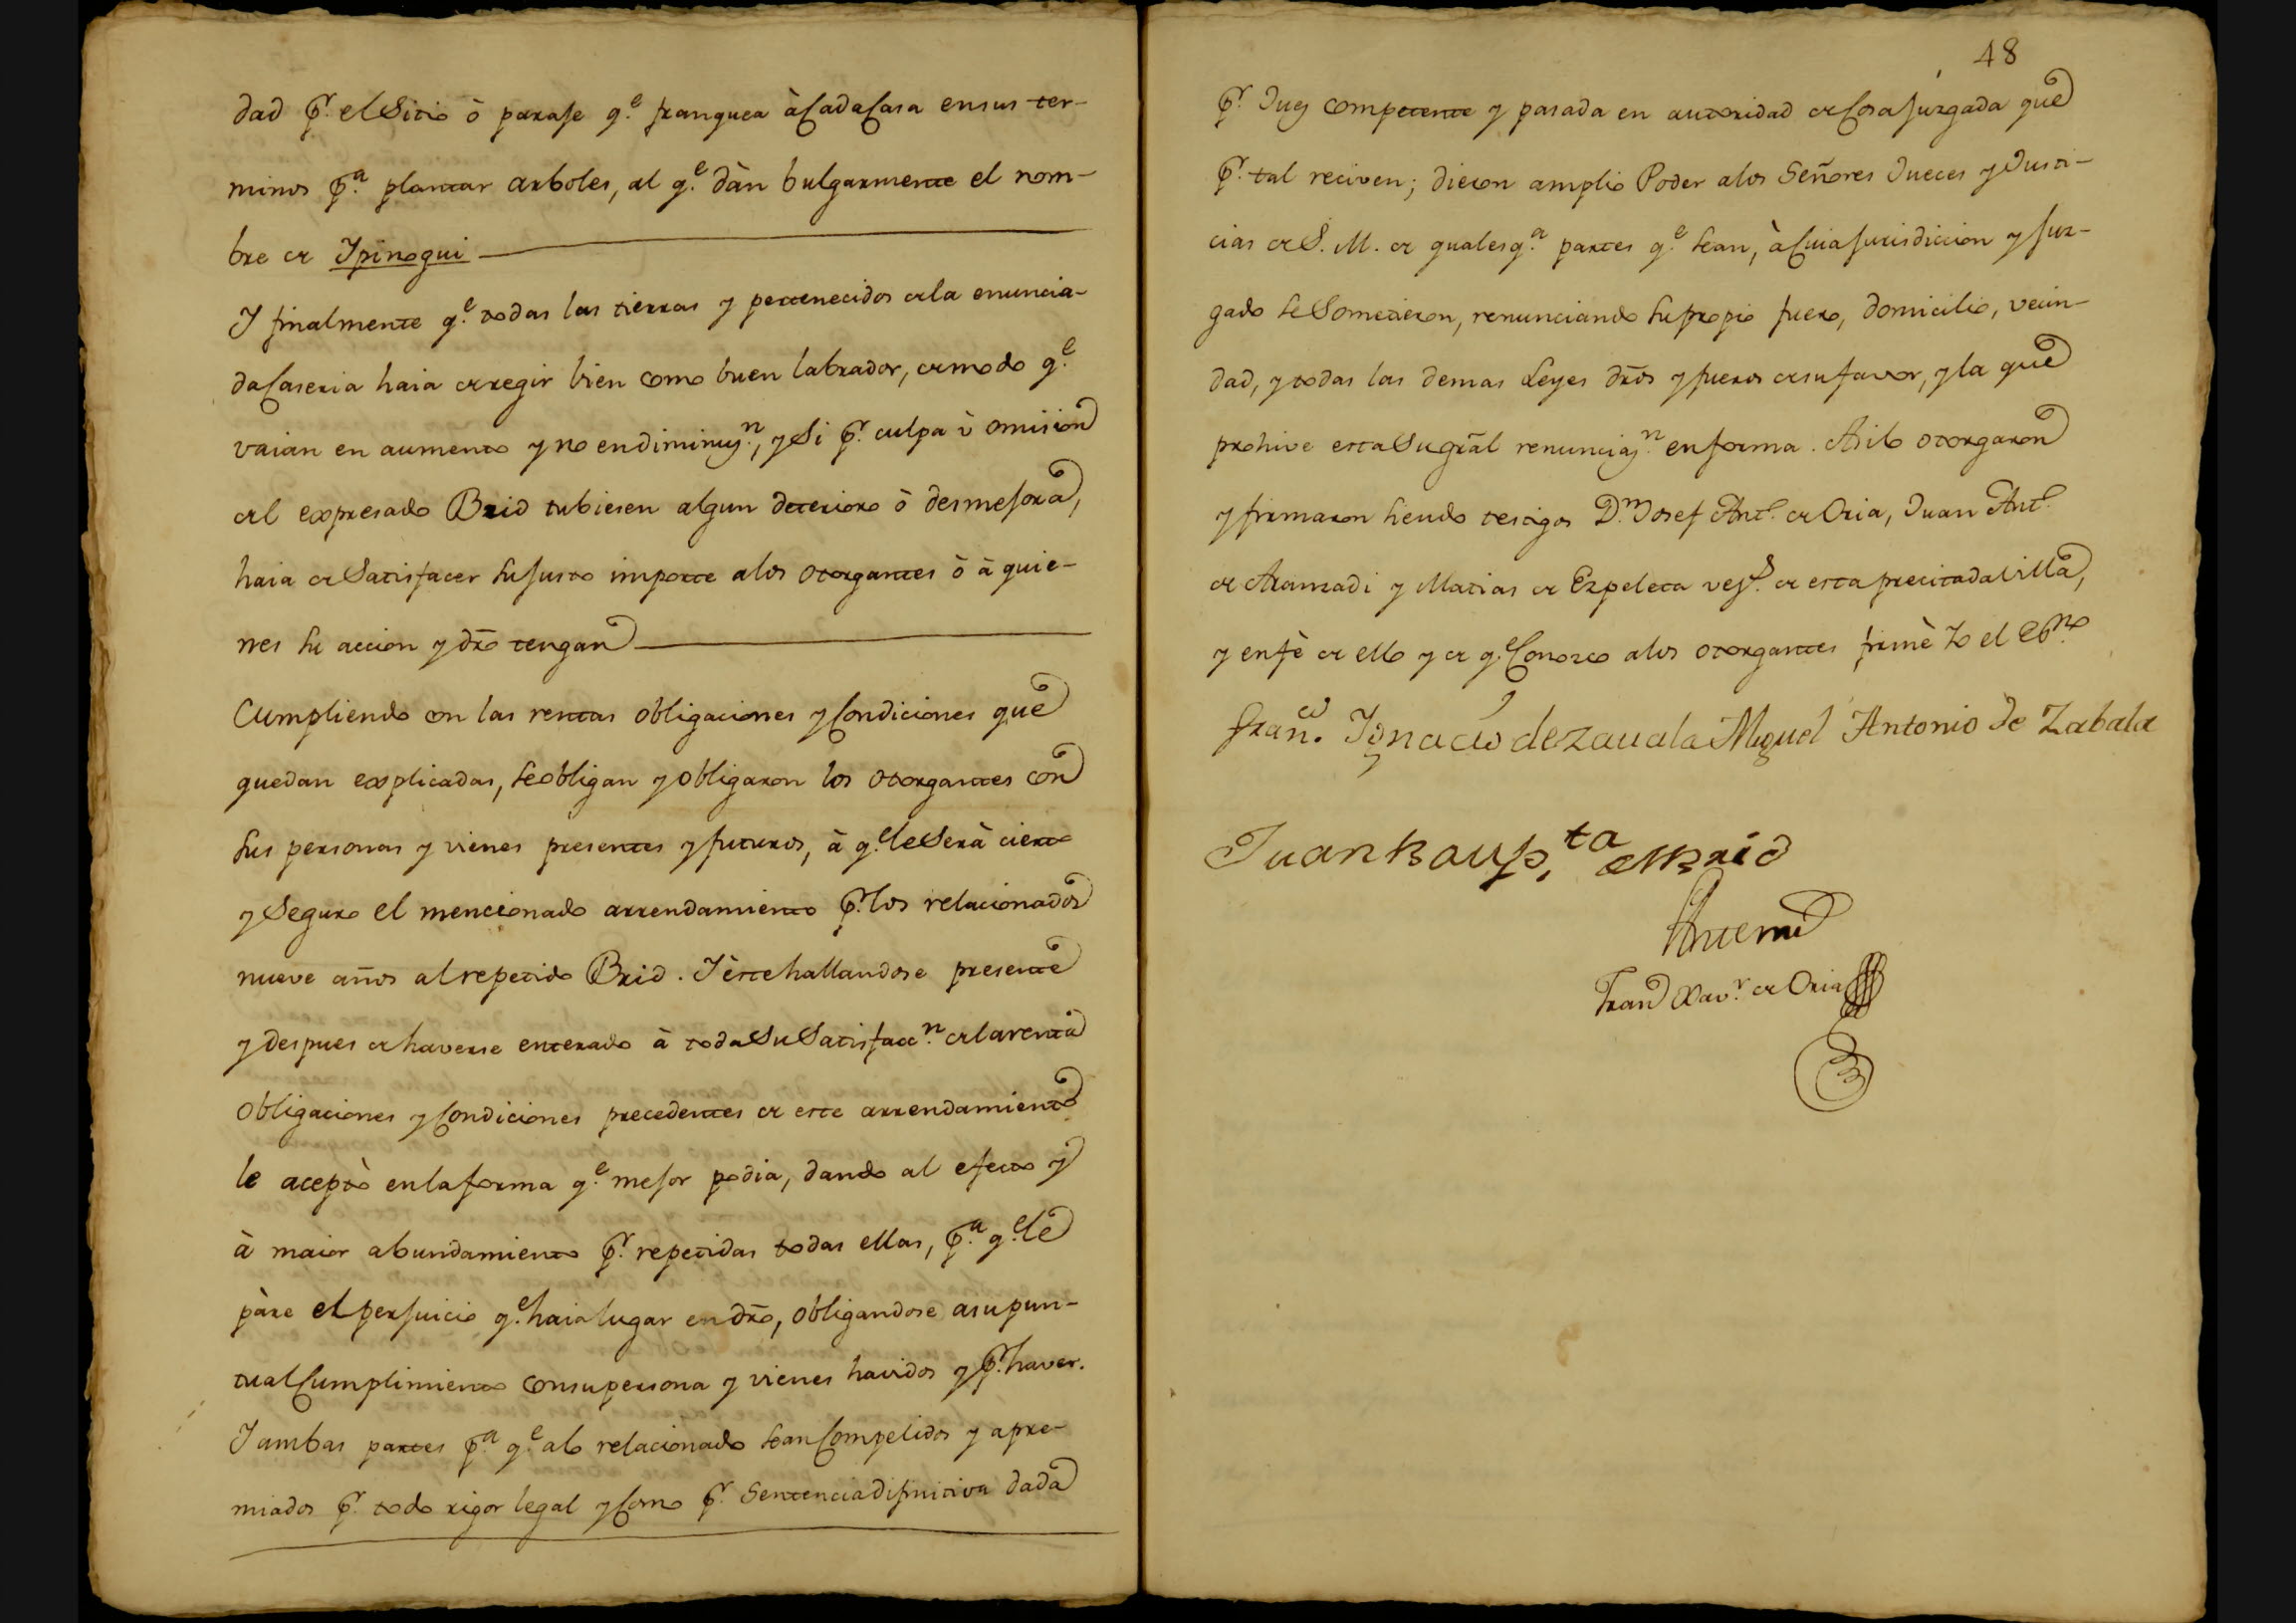 dad pr. el Sitio ò paraje q.e franquea à Cada Casa en sus ter-
minos p.a plantar arboles, al q.e dàn bulgarmente el nom-
bre de Ipinegui
I finalmente q.e todas las tierras y pertenecidos de la enuncia-
da Caseria haia de regir bien como buen labrador, de modo q.e
vaian en aumento y no en diminuz.n, y Si pr. culpa ù omision
del expresado Brid tubiesen algun deterioro ò desmejora,
haia de Satisfacer su justo importe a los otorgantes ò à quie-
nes su accion y dro tengan
Cumpliendo con las rentas obligaciones y Condiciones que
quedan explicadas, se obligan y obligaron los otorgantes con
sus personas y vienes presentes y futuros, à q.e le Serà cierto
y Seguro el mencionado arrendamiento pr. los relacionados
nueve años al repetido Brid. I èste hallandose presente
y despues de haverse enterado à toda Su Satisfacc.n de la renta
obligaciones y Condiciones precedentes de este arrendamiento
le aceptò en la forma q.e mejor podia, dando al efecto y
à maior abundamiento pr. repetidas todas ellas, p.a q.e le
pàre el perjuicio q.e haia lugar en dro, obligandose a su pun-
tual Cumplimiento con su persona y vienes havidos y pr. haver.
I ambas partes p.a q.e a lo relacionado sean Compelidos y apre-
miados pr. todo rigor legal y Como pr. Sentencia difinitiva dada
48
pr. Juez competente y pasada en autoridad de Cosa juzgada que
pr. tal reciven; dieron amplio Poder a los Señores Jueces y Justi-
cias de S. M. de qualesq.a partes q.e sean, à Cuia jurisdiccion y juz-
gado se Sometieron, renunciando su propio fuero, domicilio, vecin-
dad, y todas las demas Leyes dros y fueros de su favor, y la que
prohive esta Su gral renunciaz.n en forma. Asi lo otorgaron
y firmaron siendo testigos D.n Josef Ant.o de Oria, Juan Ant.o
de Aramzadi y Matias de Ezpeleta vez.s de esta precitada Villa,
y en fè de ello y de q.e Conozco a los otorgantes firmè Yo el Esno.
Fran.co Ignacio de Zauala Miguel Antonio de Zabala
Juan Baup.ta de Brid
Ante mi
Fran.co Xav.r de Oria